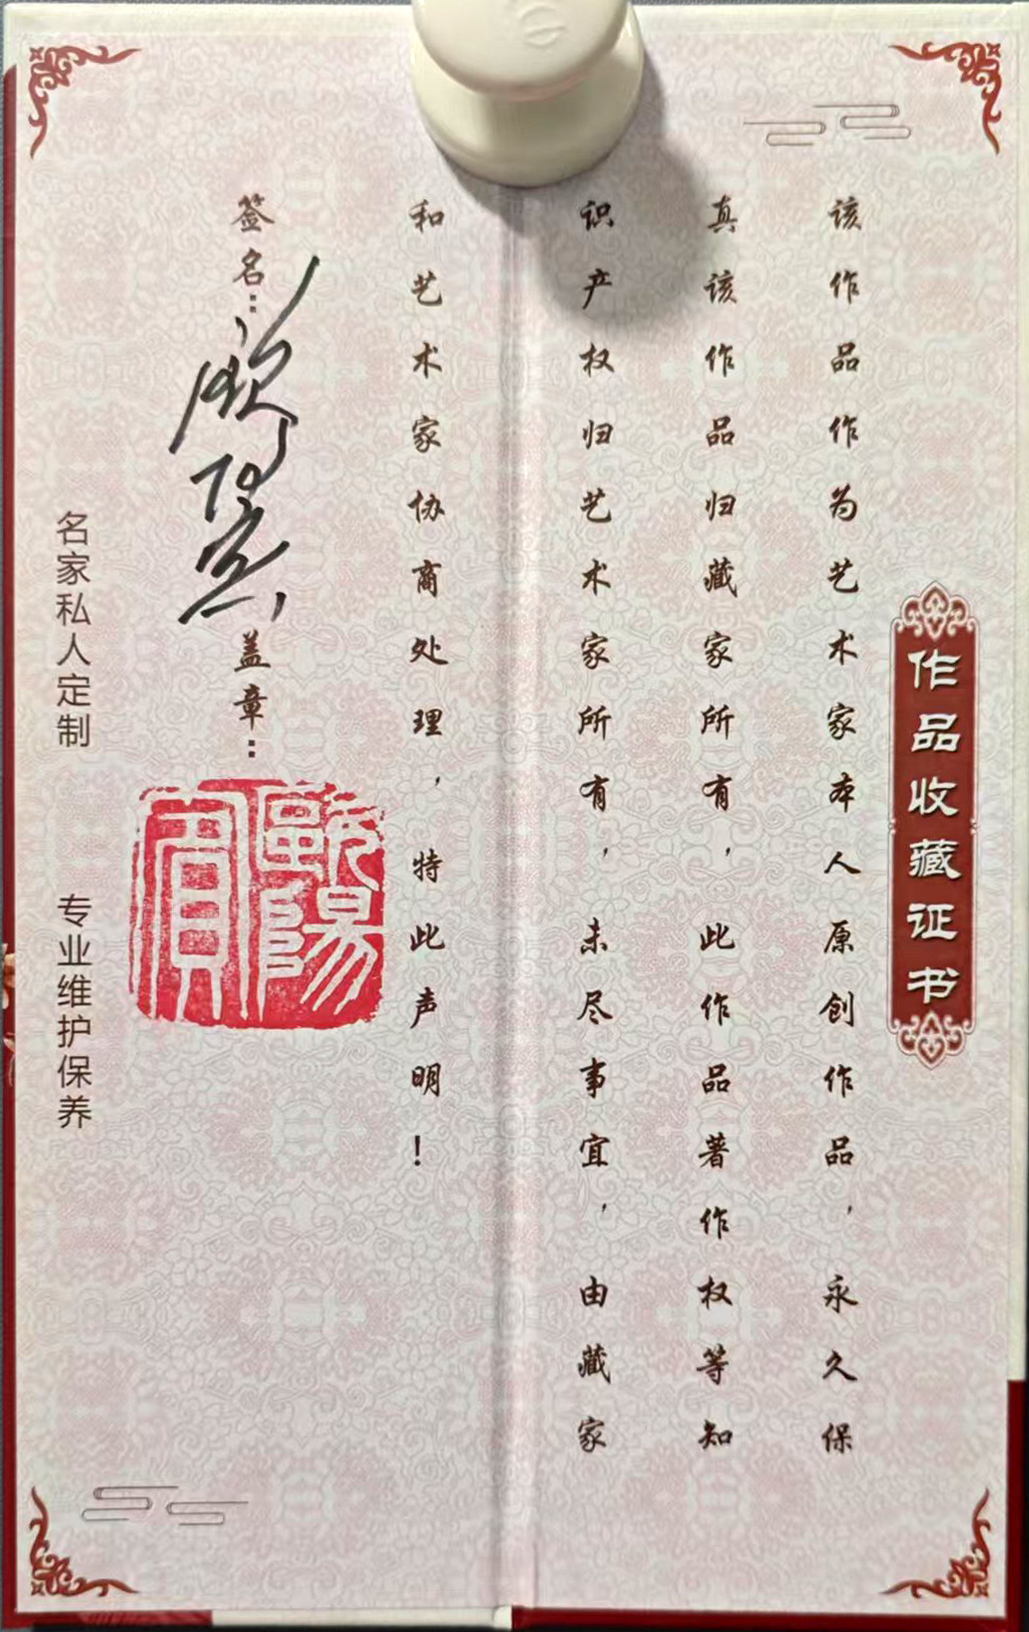 作品收藏证书
该作品作为艺术家本人原创作品，永久保
真该作品归藏家所有，此作品著作权等知
识产权归艺术家所有，未尽事宜，由藏家
和艺术家协商处理，特此声明！
签名：
盖章：
名家私人定制 专业维护保养